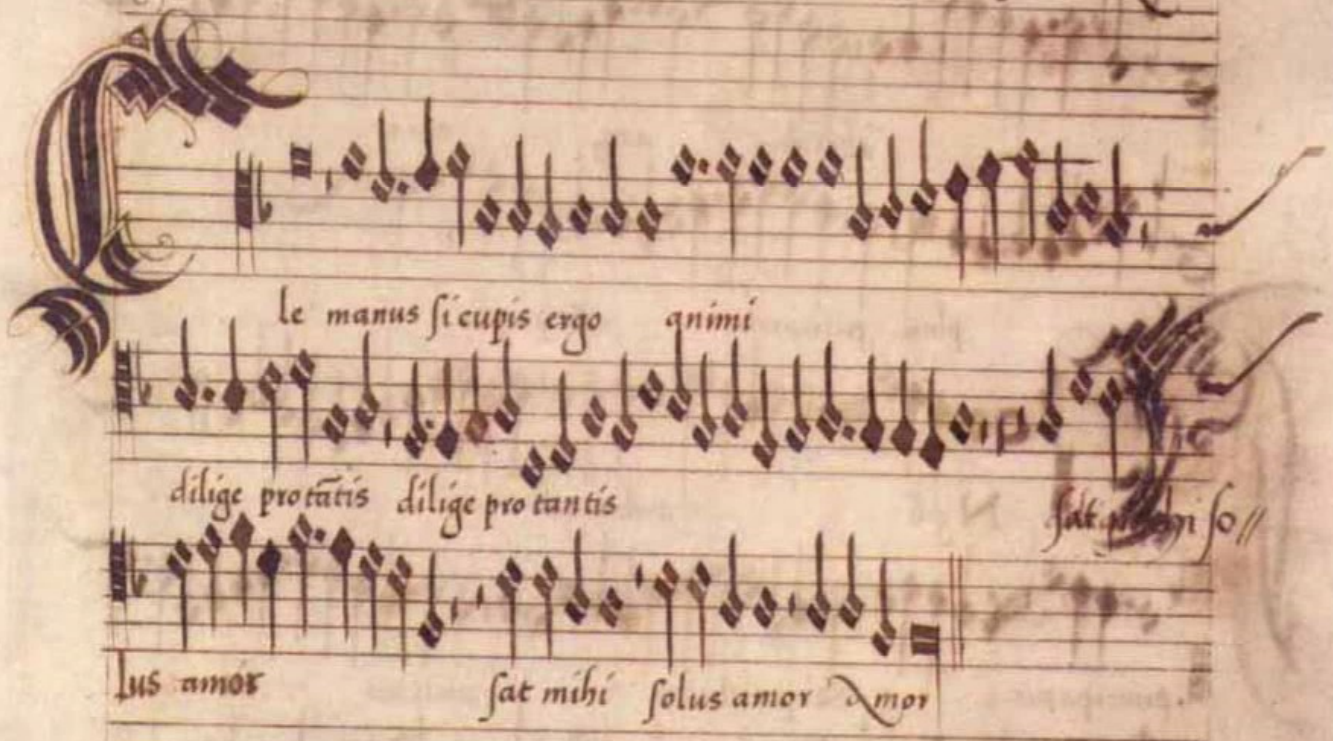 le manus si cupis ergo animi
dilige pro tātis dilige pro tantis sat mihi so//
lus amor sat mihi solus amor Amor